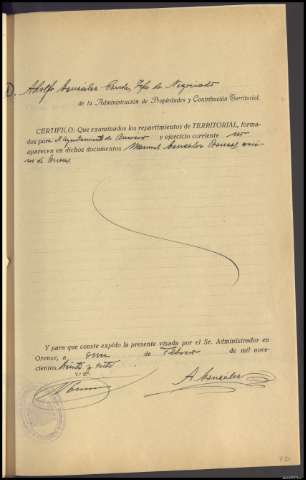 D. Adolfo González Jefe de Negociado
de la Administración de Propiedades y Contribución Territorial.
CERTIFICO: Que examinados los repartimientos de TERRITORIAL, forma-
dos por el Ayuntamiento de y ejercicio corriente no
aparecen en dichos documentos Manuel González
Y para que conste expido la presente visada por el Sr. Administrador en
Orense, a once de Febrero de mil nove-
cientos treinta y
V.º B.º
A. González